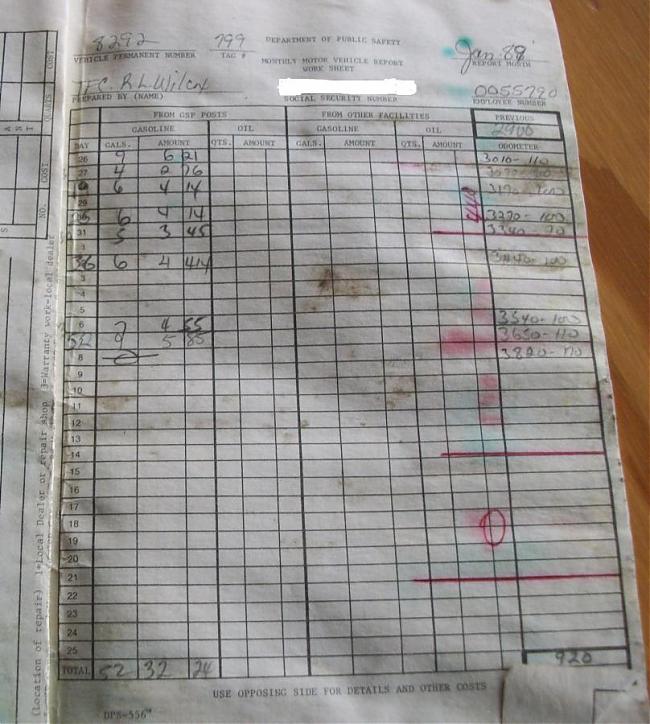 8292 799 DEPARTMENT OF PUBLIC SAFETY Jan. 88
VEHICLE PERMANENT NUMBER TAG # MONTHLY MOTOR VEHICLE REPORT REPORT MONTH
WORK SHEET
TFC. R L Wilcox 0055790
PREPARED BY (NAME) SOCIAL SECURITY NUMBER EMPLOYEE NUMBER
FROM GSP POSTS FROM OTHER FACILITIES PREVIOUS
GASOLINE OIL GASOLINE OIL 2900
DAY GALS. AMOUNT QTS. AMOUNT GALS. AMOUNT QTS. AMOUNT ODOMETER
26 9 6 21 3010-110
27 4 2 76
6 4 14 3170-100
29
6 4 14 3270-100
31 5 3 45 3340-70
1
6 4 14 3440-100
3
4
5
6 7 4 55 3540-100
9 5 85 3650-110
8 3820-170
9
10
11
12
13
14
15
16
17
18
19
20
21
22
23
24
25 920
TOTAL 52 32 24
USE OPPOSING SIDE FOR DETAILS AND OTHER COSTS
DPS-556
(location of repair) 1=Local Dealer or repair shop 3=Warranty work-local dealer
NO. COST QUANTS COST